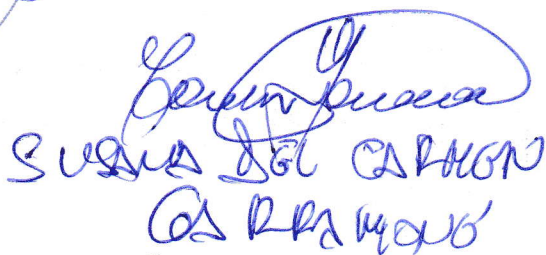 SUSANA DEL CARMEN
GARRAMONÓ